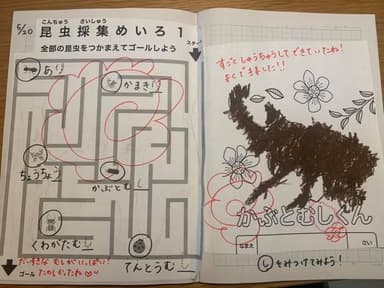 5/20
こんちゅう さいしゅう
昆虫採集めいろ1
全部の昆虫をつかまえてゴールしよう
スタート
あり
かまきり
ちょうちょう
かぶとむし
くわがたむし
てんとうむし
だいすきな むしが いっぱい!
ゴール たのしかったね
すごく しゅうちゅうして できていたね!
よくできました!!
かぶとむしくん
なまえ
さい
しをみつけてみよう!